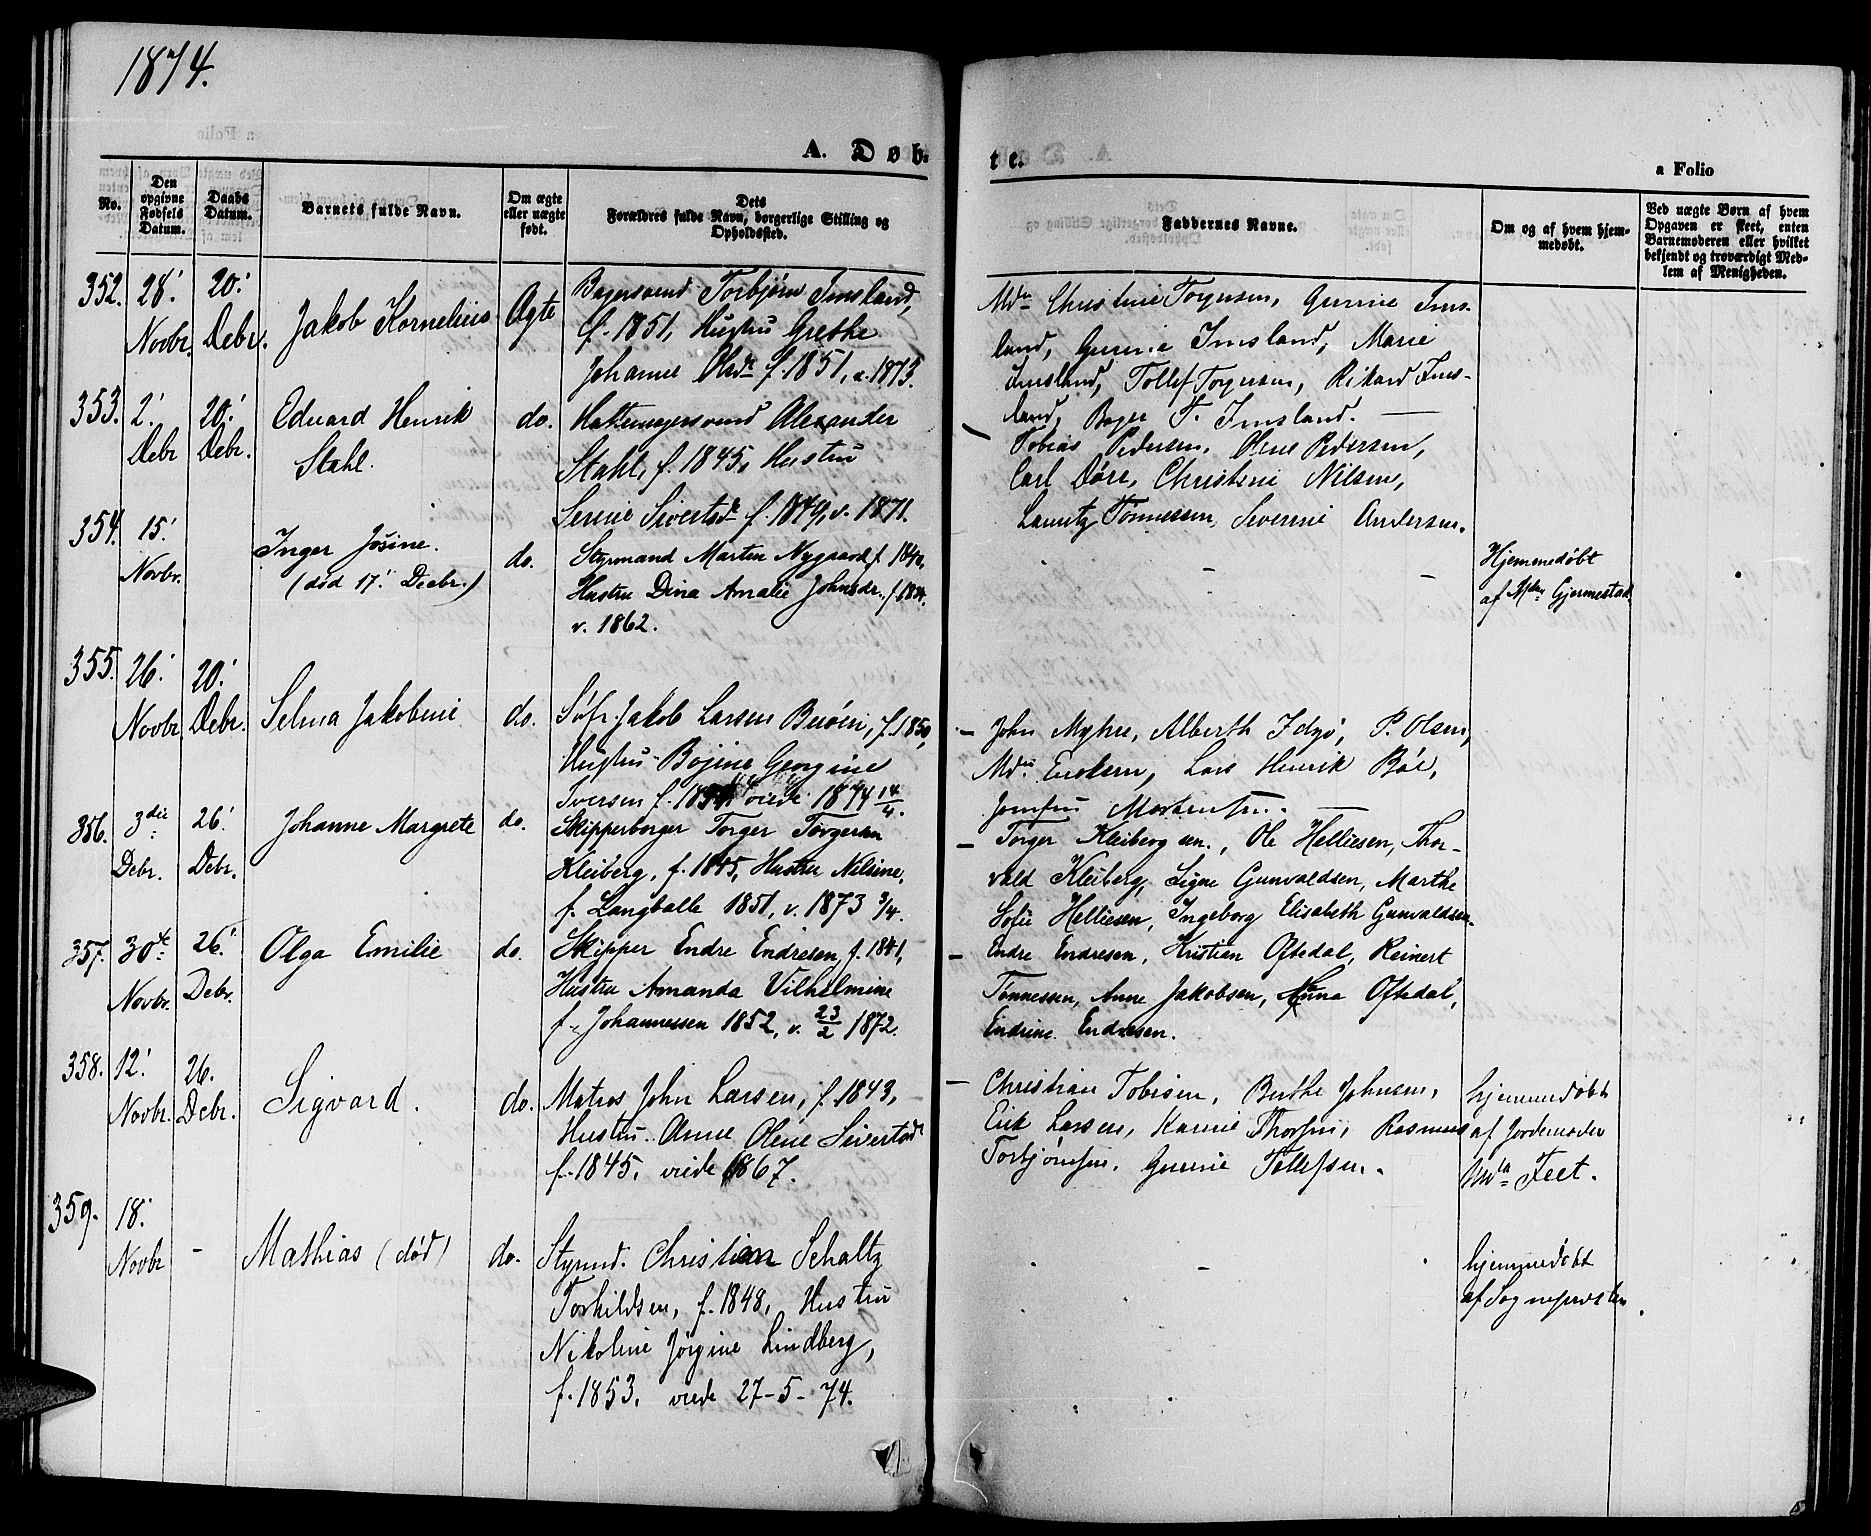 1874.
A. Døbte.
a Folio
No.
Den opgivne Fødsels Datum.
Daabs Datum.
Barnets fulde Navn.
Om ægte eller uægte født.
Dets Forældres fulde Navn, borgerlige Stilling og Opholdssted.
Faddernes Navne.
Om og af hvem hjemmedøbt.
Ved uægte Børn af hvem Opgaven er skeet, enten Barnemoderen eller hvilket bekjendt og troværdigt Medlem af Menigheden.
352. 28' Novbr. 20' Debr. Jakob Kornelius Ægte
Bagersvend Torbjørn Imsland,
f. 1851, Hustru Grethe
Johanne Olsdr f. 1851, v. 1873.
Mdm Christine Torgersen, Gurine Ims-
land, Gurine Imsland, Marie
Imsland, Tollef Torgersen, Rikard Ims-
land, Bager T. Imsland. —
353. 2' Debr 20' Debr. Eduard Henrik
Stahl. do.
Hattemagersvend Alexander
Stahl, f. 1845, Hustru
Serine Sivertsdr f. 1849, v. 1871.
Tobias Pedersen, Olene Pedersen,
Carl Døre, Christine Nilsen,
Lauritz Tønnessen, Severine Andersen.
354. 15' Novbr. Inger Josine.
(død 17' Decbr.) do.
Styrmand Morten Nygaard f. 1840,
Hustru Dina Amalie Johnsdr. f. 1834.
v. 1862.
- -
Hjemmedøbt
af Mdm Gjermestad.
355. 26' Novbr 20' Debr. Selma Jakobine do.
Søfr. Jakob Larsen Buøen, f. 1850,
Hustru Bojine Georgine
Iversen f. 1854 viede 1874 14/4.
— John Myhre, Alberth Idsø, P. Olsen,
Mdm. Eriksen, Lars Henrik Bøe,
Jomfru Mortensen. —
356. 3die Debr. 26' Debr. Johanne Margrete do.
Skipperborger Torger Torgersen
Kleiberg, f. 1845, Hustru Nilsine,
f. Langballe 1851, v. 1873 3/4.
— Torger Kleiberg sen., Ole Helliesen, Thor-
vald Kleiberg, Signe Gunvaldsen, Marthe
Sofie Helliesen, Ingeborg Elisabeth Gunvaldsen.
357. 30te Novbr. 26' Debr. Olga Emilie do.
Skipper Endre Endresen, f. 1841,
Hustru Amanda Vilhelmine
f. Johannessen 1852, v. 23/2 1872.
— Endre Endresen, Kristian Oftedal, Reinert
Tønnessen, Anne Jakobsen, Anna Oftedal,
Endrine Endresen.
358. 12' Novbr. 26. Debr. Sigvard. do.
Matros John Larsen, f. 1843,
Hustru Anne Olene Sivertsdr
f. 1845, viede 1867.
— Christian Tobisen, Berthe Johnsen,
Erik Larsen, Karine Thorsen, Rasmus
Torbjørnsen, Gurine Tollefsen.
hjemmedøbt
af Jordemoder
Mda Feet.
359. 18' Novbr - Mathias (død) do.
Styrmd. Christian Schaltz
Torkildsen, f. 1848, Hustru
Nikoline Jørgine Lindberg,
f. 1853, viede 27-5-74.
-
hjemmedøbt
af Sognepresten.